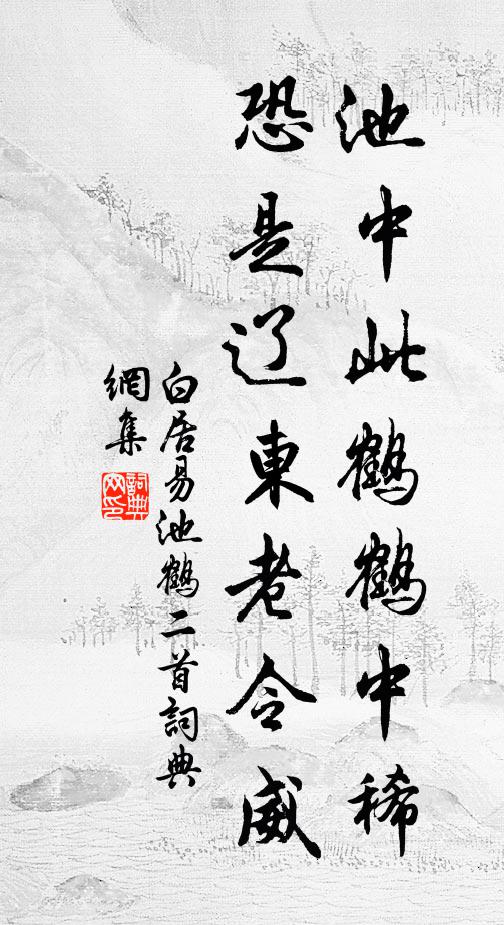 池中此鶴鶴中稀
恐是辽東老令威
白居易池鶴二首詞典
網集
詞典网印